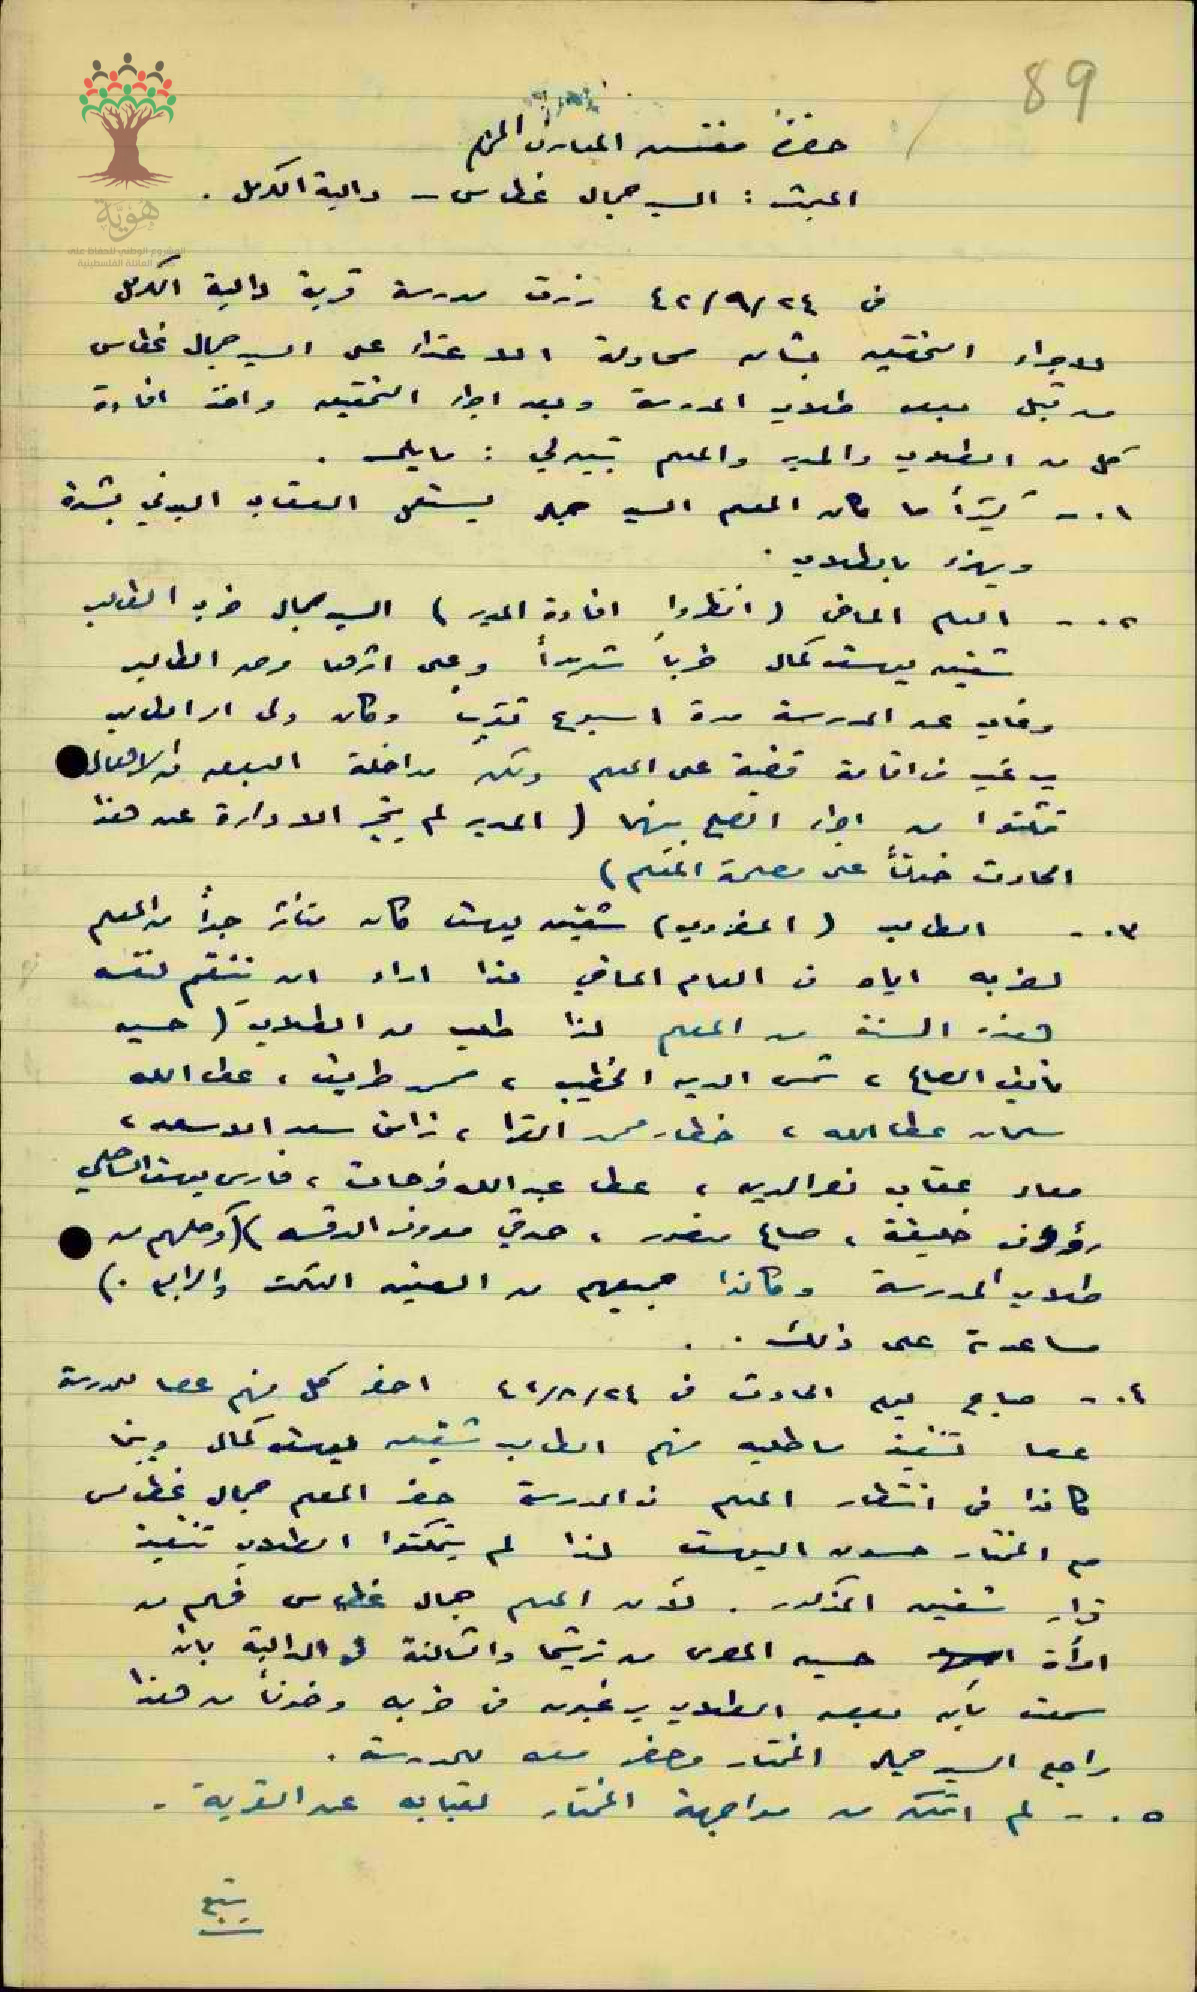 89
حضرة مفتش المعارف المحترم
المبحث : السيد جمال غطاس - دالية الكرمل .
في ٤٢/٩/٢٤ زرت مدرسة قرية دالية الكرمل
لاجراء التحقيق بشان محاولة الاعتداء على السيد جمال غطاس
من قبل بعض طلاب المدرسة وبعد اجراء التحقيق واخذ افادة
كل من الطلاب والمدير والمعلم تبين لي : ما يلي .
١. - كثيراً ما كان المعلم السيد جمال يستعمل العقاب البدني بشدة
ويهزء بالطلاب .
٢. - العام الماضي ( انظروا افادة المدير ) السيد جمال ضرب الطالب
شفيق يوسف كمال ضرباً شديداً وعلى اثرها مرض الطالب
وغاب عن المدرسة مدة اسبوع تقريباً وكان ولي امر الطالب
يرغب في اقامة قضية على المعلم ولكن مداخلة البعض من الاهالي
تمكنوا من اجراء الصلح بينهما ( المدير لم يخبر الادارة عن هذا
الحادث خوفاً على مصلحة المعلم )
٣. - الطالب ( المضروب ) شفيق يوسف كان متأثر جداً من المعلم
لضربه اياه في العام الماضي لذا اراد ان ينتقم لنفسه
هذه السنة من المعلم لذا طلب من الطلاب ( حسين
نايف الصالح ، شمس الدين الخطيب ، طريف ، عطا الله
سلمان عطا الله ، خطار محمد القرا ، سعد الاسعد ،
معاد عقاب نصر الدين ، عطا عبد الله فرحات ، فارس يوسف
رؤوف خليفة ، صالح منصور ، صدقي معروف ) ( وكلهم من
طلاب المدرسة وكانوا جميعهم من الصفين الثالث والرابع . )
مساعدته على ذلك .
٤. - صباح يوم الحادث في ٤٢/٨/٢٤ احضر كل منهم عصا للمدرسة
عصا لتنفيذ ما طلبه منهم الطالب شفيق يوسف كمال وبينما
كانوا في انتظار المعلم في المدرسة حضر المعلم جمال غطاس
مع المختار حسون اليوسف لذا لم يتمكنوا الطلاب تنفيذ
قرار شفيق المذكور . لأن المعلم جمال غطاس فهم من
امرأة حسين المصري من ترشيحا والساكنة في الدالية بانها
سمعت بأن بعض الطلاب يرغبون في ضربه وخوفاً من هذا
راجع السيد جمال المختار وحضر معه للمدرسة .
٥. - لم اتمكن من مواجهة المختار لغيابه عن القرية -
يتبع
هوية
المشروع الوطني للحفاظ على
العائلة الفلسطينية